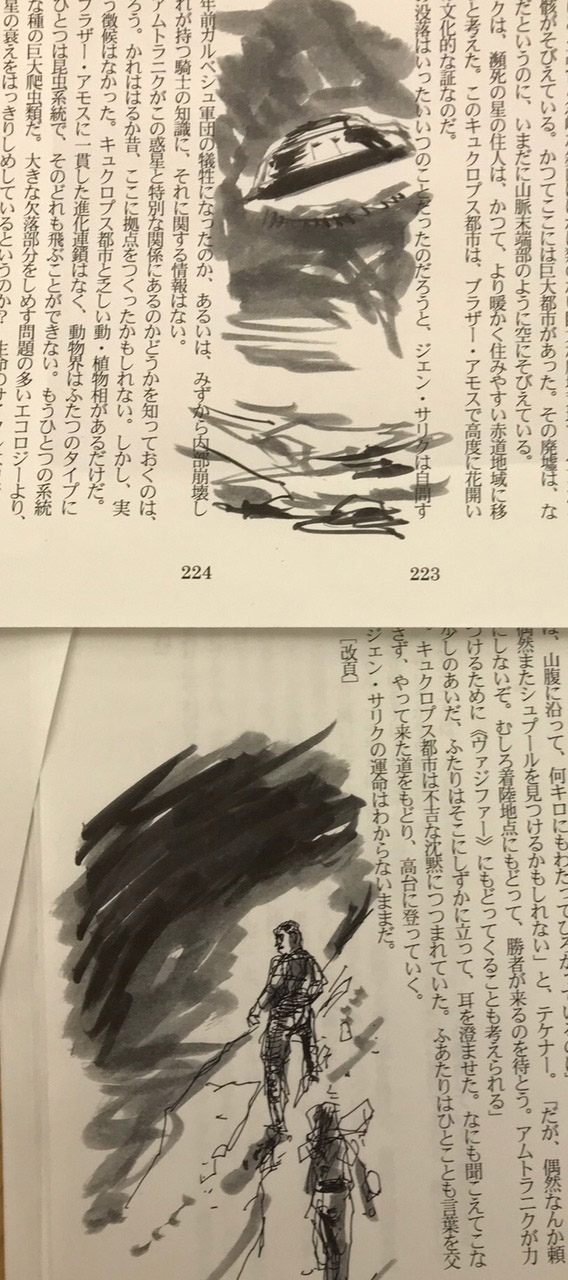 骸がそびえている。かつてここには巨大都市があった。その廃墟は、な
だというのに、いまだに山脈末端部のように空にそびえている。
クは、瀕死の星の住人は、かつて、より暖かく住みやすい赤道地域に移
と考えた。このキュクロプス都市は、ブラザー・アモスで高度に花開い
文化的な証なのだ。
没落はいったいいつのことだったのだろうと、ジェン・サリクは自問す
223
年前ガルベシュ軍団の犠牲になったのか、あるいは、みずから内部崩壊し
れが持つ騎士の知識に、それに関する情報はない。
アムトラニクがこの惑星と特別な関係にあるのかどうかを知っておくのは、
ろう。かれははるか昔、ここに拠点をつくったかもしれない。しかし、実
う徴候はなかった。キュクロプス都市と乏しい動・植物相があるだけだ。
ブラザー・アモスに一貫した進化連鎖はなく、動物界はふたつのタイプに
ひとつは昆虫系統で、そのどれも飛ぶことができない。もうひとつの系統
な種の巨大爬虫類だ。大きな欠落部分をしめす問題の多いエコロジーより、
星の衰えをはっきりしめしているというのか？　生命のサイクル
224
は、山腹に沿って、何キロにもわたってひろがっているのに」
偶然またシュプールを見つけるかもしれない」と、テケナー。「だが、偶然なんか頼
にしないぞ。むしろ着陸地点にもどって、勝者が来るのを待とう。アムトラニクが力
つけるために《ヴァジファー》にもどってくることも考えられる」
少しのあいだ、ふたりはそこにしずかに立って、耳を澄ませた。なにも聞こえてこな
キュクロプス都市は不吉な沈黙につつまれていた。ふあたりはひとことも言葉を交
さず、やって来た道をもどり、高台に登っていく。
ジェン・サリクの運命はわからないままだ。
［改頁］